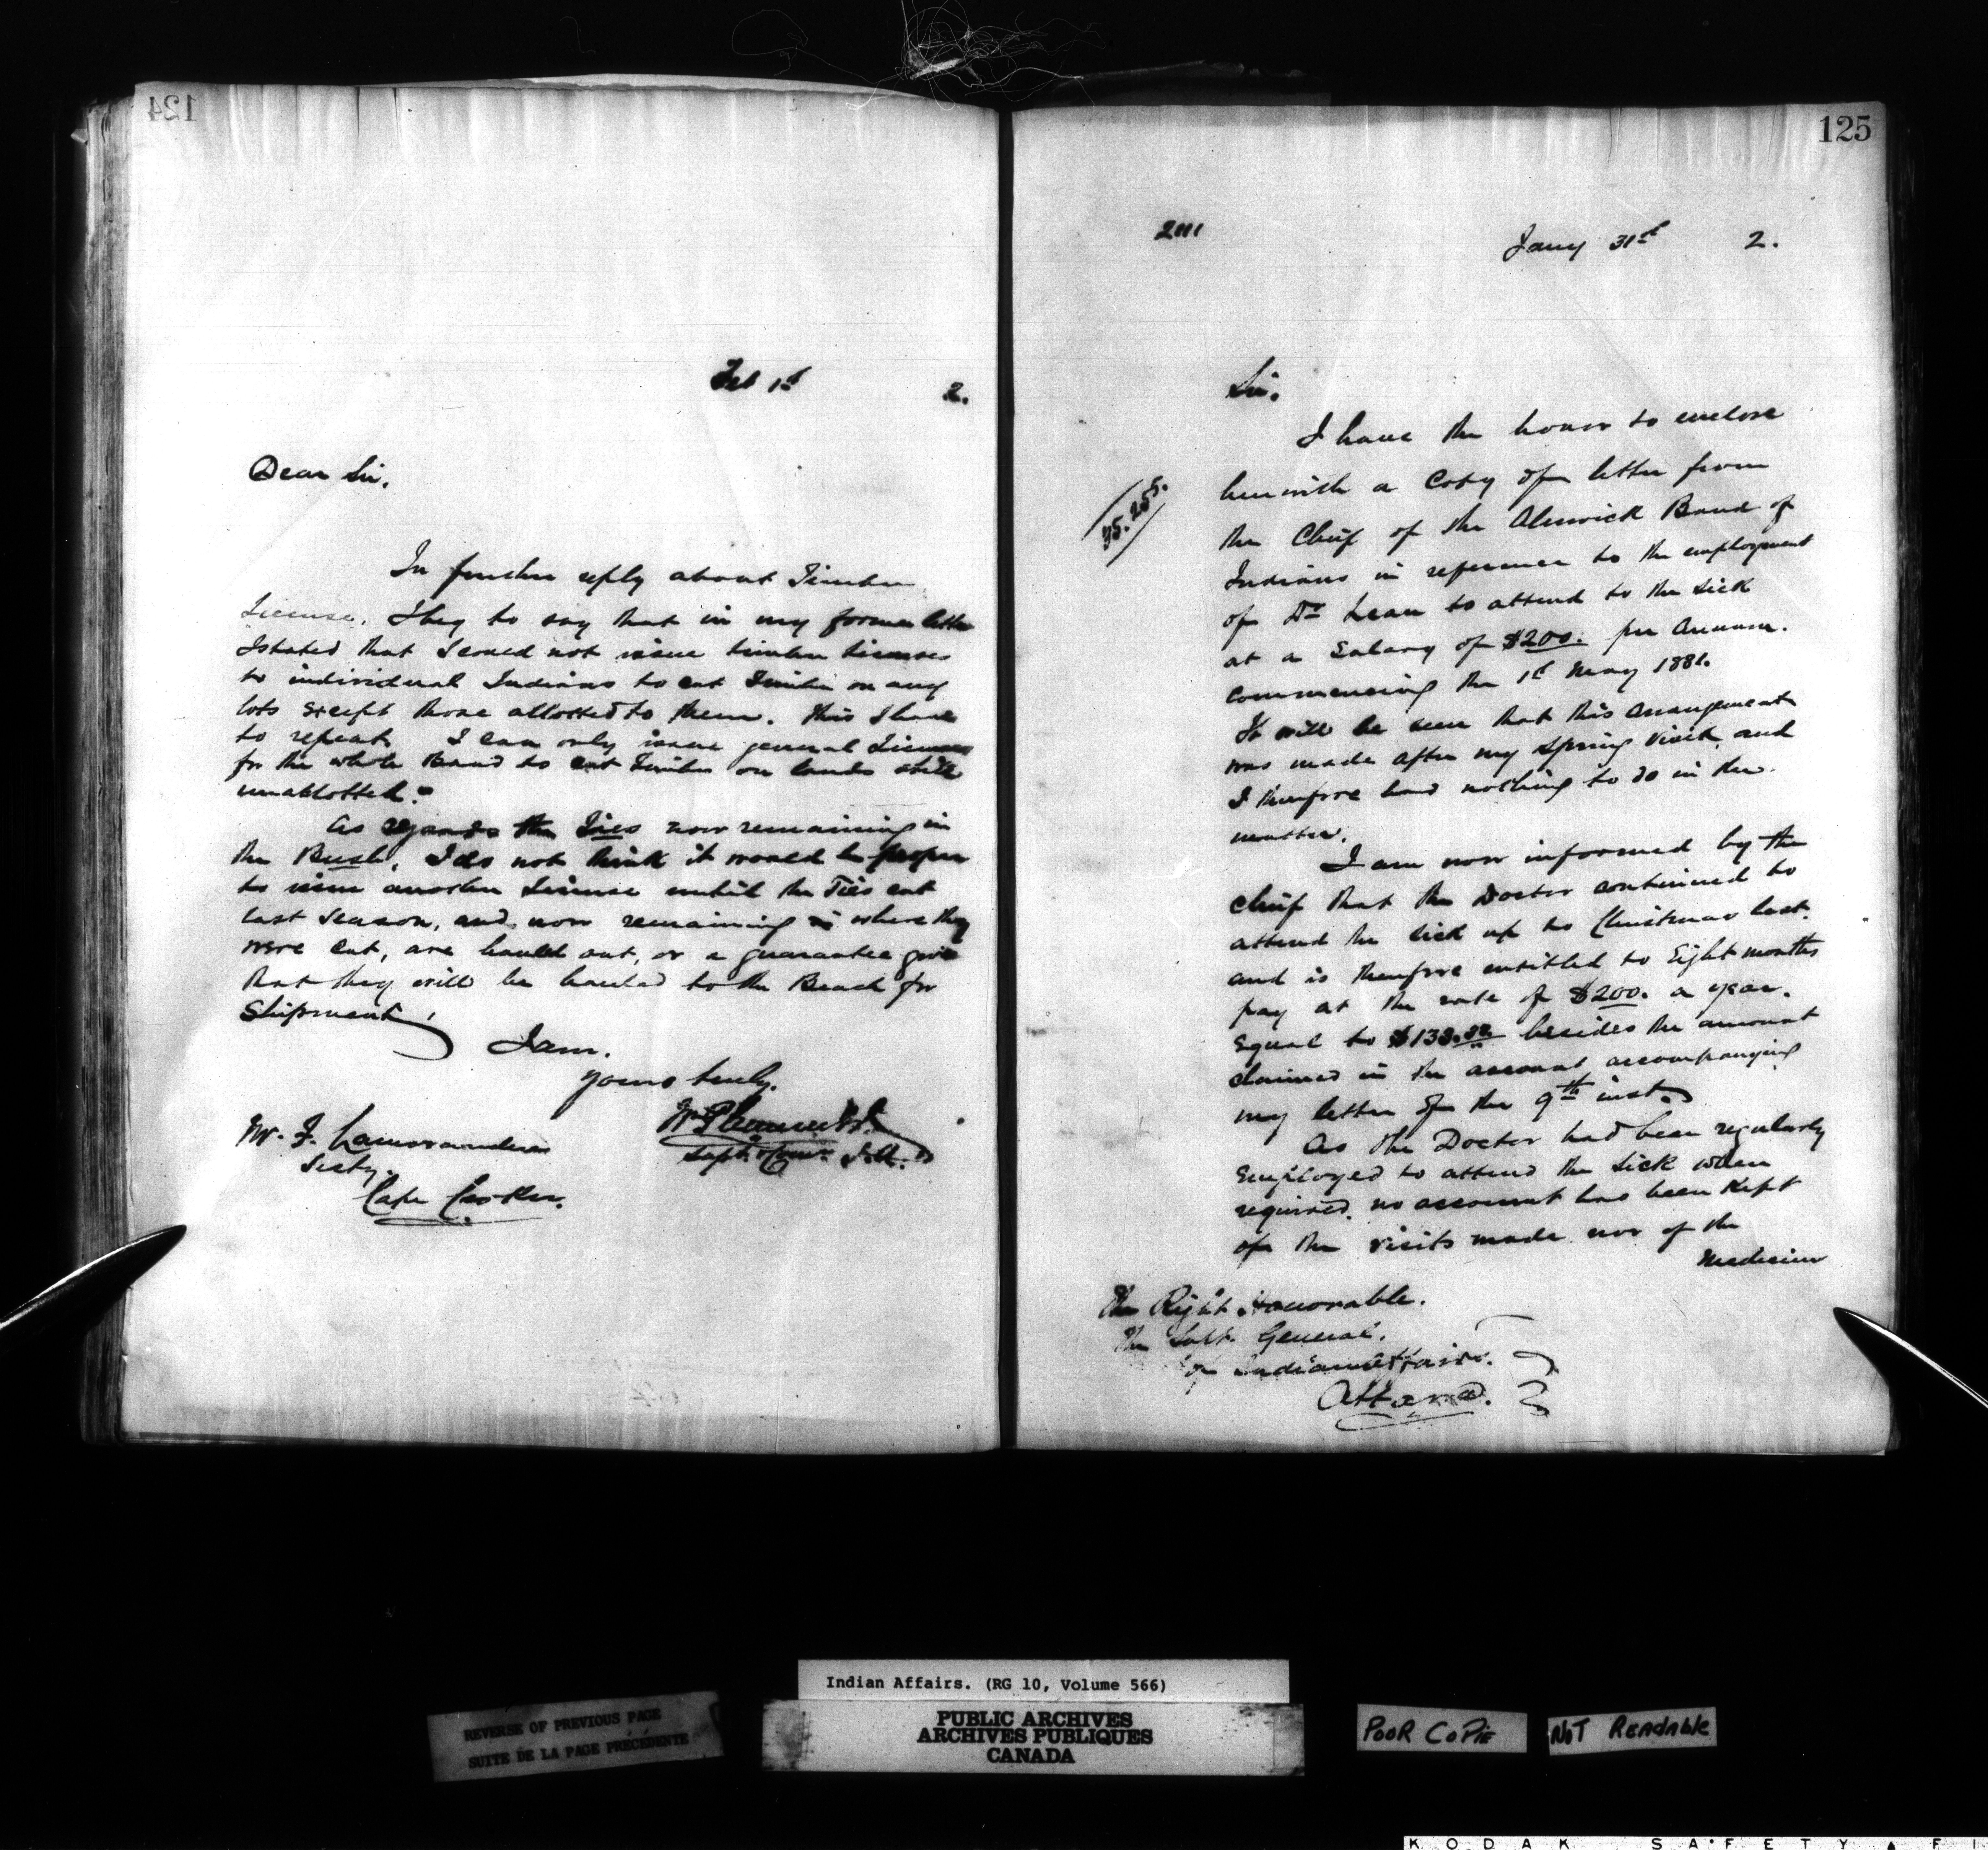 124
Feb 1st 2.
Dear Sir,
In further reply about Timber
License, I beg to say that in my former letter
I stated that I could not issue timber licenses
to individual Indians to cut Timber on any
lots except those allotted to them. This I have
to repeat I can only issue general Licenses
for the whole Band to cut Timber on lands still
unallotted.
As regards the Ties now remaining in
the Bush, I do not think it would be proper
to issue another License until the Ties cut
last season, and now remaining where they
were cut, are hauled out, or a guarantee give
that they will be hauled to the Beach for
Shipment,
I am.
yours truly.
Wm Plummer
Supt. & Comr. I.A.
Mr. F. Lamorandiere
Secty.
Cape Croker.
125
Jany 31st 2.
Sir.
35.255.
I have the honor to enclose
herewith a Copy of a letter from
the Chief of the Alnwick Band of
Indians in reference to the employment
of Dr Lean to attend to the sick
at a Salary of $200. per Annum.
Commencing the 1st May 1881.
It will be seen that this arrangement
was made after my spring visit, and
I therefore had nothing to do in the
matter.
I am now informed by the
chief that the Doctor continued to
attend the sick up to Christmas last.
and is therefore entitled to Eight months
pay at the rate of $200. a year.
Equal to $133.33 besides the amount
claimed in the account accompanying
my letter of the 9th inst.
As the Doctor had been regularly
Employed to attend the sick when
required, no account has been Kept
of the visits made nor of the
Medicine
The Right Honorable.
The Supt. General.
of Indian Affairs.
Ottawa.
Indian Affairs. (RG 10, Volume 566)
REVERSE OF PREVIOUS PAGE
SUITE DE LA PAGE PRÉCÉDENTE
PUBLIC ARCHIVES
ARCHIVES PUBLIQUES
CANADA
POOR COPIE
NOT READABLE
KODAK SAFETY FI